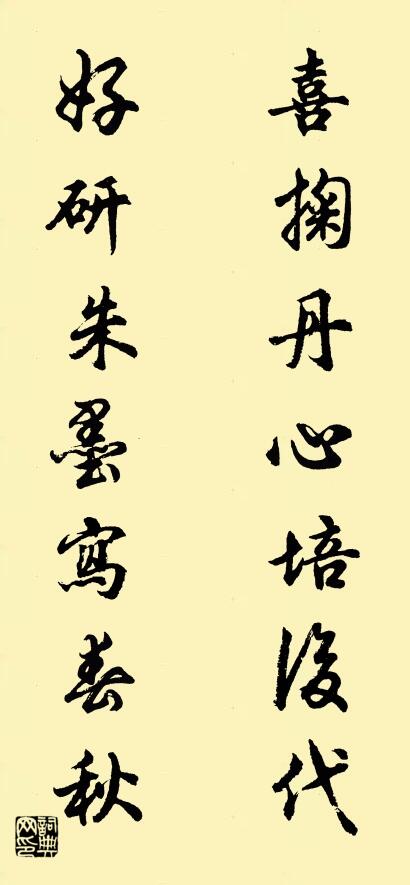 喜掬丹心培後代
好研朱墨寫春秋
詞典網印